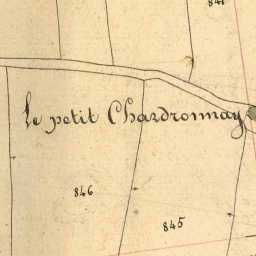 841
Le petit Chardronnay
846
845